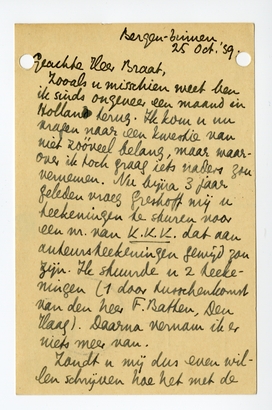 Bergen-binnen,
25 Oct. '39.
Geachte Heer Braat,
Zooals u misschien weet ben
ik sinds ongeveer een maand in
Holland terug. Ik kom u nu
vragen naar een kwestie van
niet zóóveel belang, maar waar-
over ik toch graag iets naders zou
vernemen. Nu bijna 3 jaar
geleden vroeg Greshoff mij u
teekeningen te sturen voor
een nr. van K.K.K. dat aan
auteursteekeningen gewijd zou
zijn. Ik stuurde u 2 teeke-
ningen (1 door tusschenkomst
van den heer F. Batten, Den
Haag). Daarna vernam ik er
niets meer van.
Zoudt u mij dus even wil-
len schrijven hoe het met de